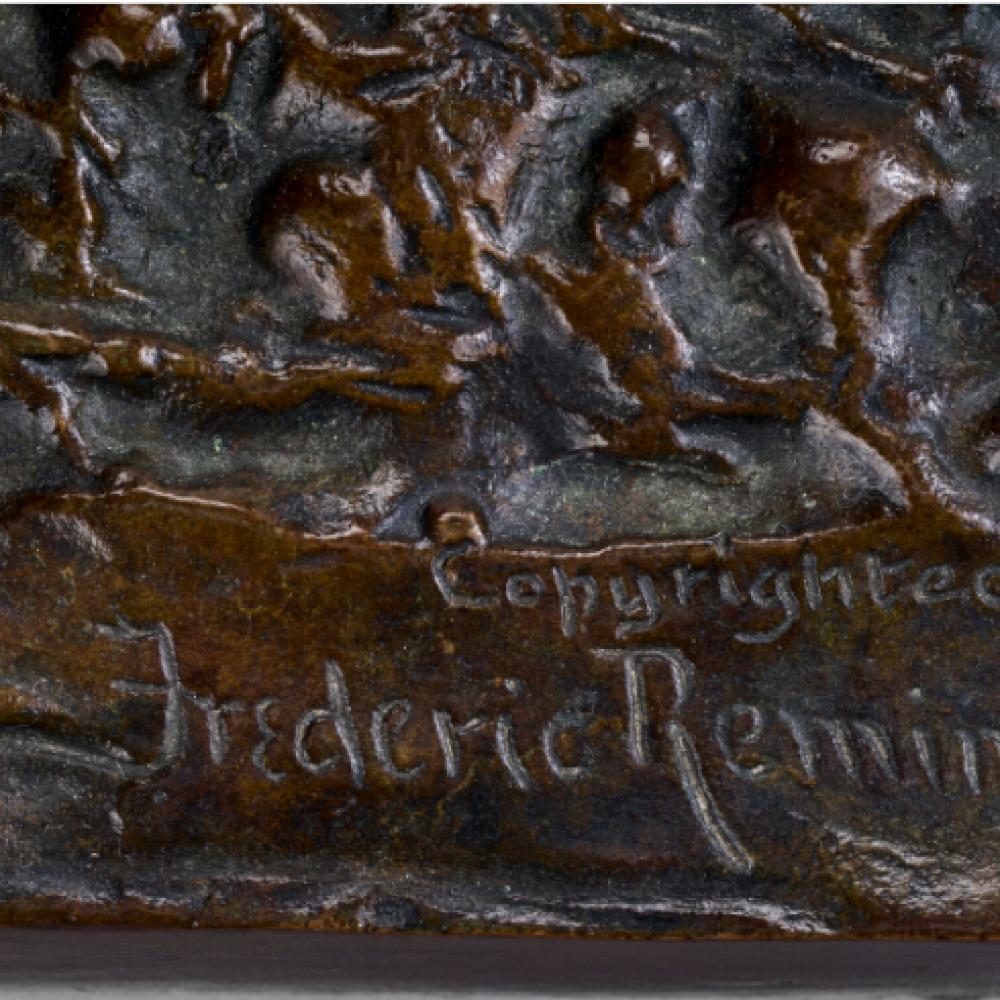 Copyrighted
Frederic Remin